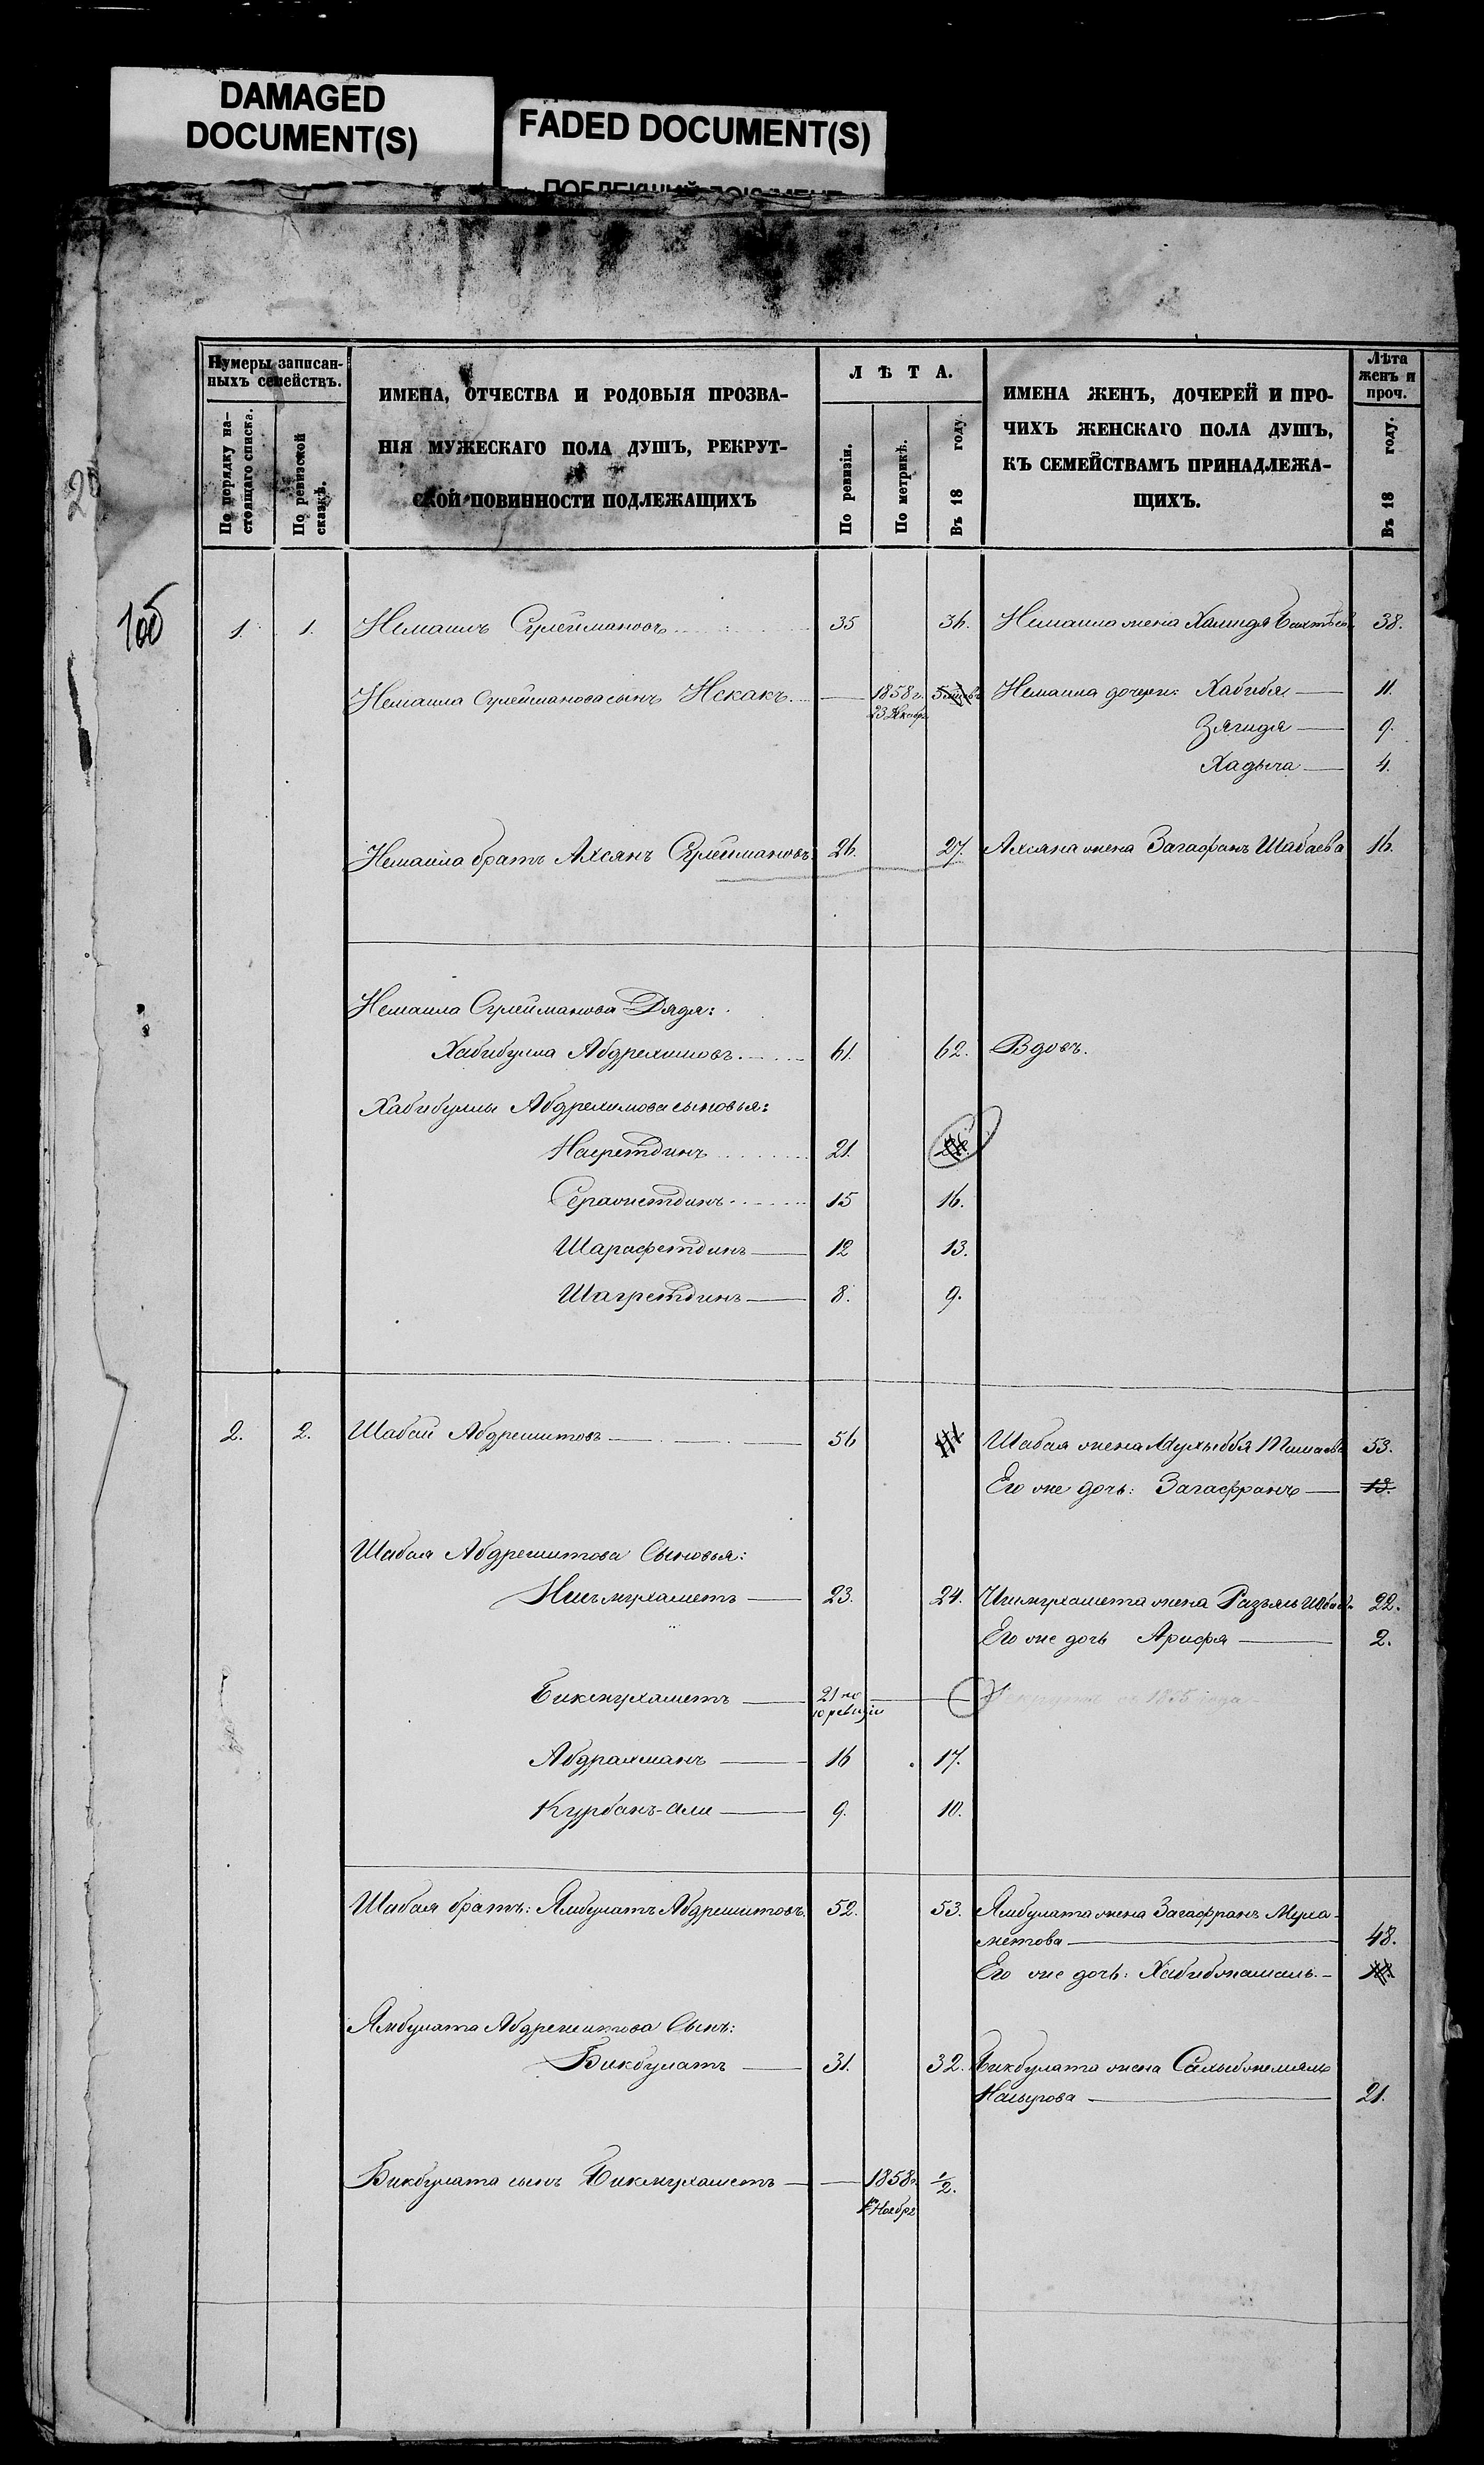 DAMAGED
DOCUMENT(S)
FADED DOCUMENT(S)
Нумеры записан-
ныхъ семействъ.
По порядку на-
стоящаго списка.
По ревизской
сказкѣ.
ИМЕНА, ОТЧЕСТВА И РОДОВЫЯ ПРОЗВА-
НІЯ МУЖЕСКАГО ПОЛА ДУШЪ, РЕКРУТ-
СКОЙ ПОВИННОСТИ ПОДЛЕЖАЩИХЪ
ЛѢТА.
По ревизіи.
По метрикѣ.
Въ 18 году.
ИМЕНА ЖЕНЪ, ДОЧЕРЕЙ И ПРО-
ЧИХЪ ЖЕНСКАГО ПОЛА ДУШЪ,
КЪ СЕМЕЙСТВАМЪ ПРИНАДЛЕЖА-
ЩИХЪ.
Лѣта
женъ и
проч.
Въ 18 году.
20
1. 1. Исмаилъ Сулеймановъ 35 36. Исмаила жена Халидя 38.
Исмаила Сулейманова сынъ Искакъ — 1858 г. Исмаила дочери: Хабибя — 11.
23 Декабр.
Зягидя — 9.
Хадыча — 4.
Исмаила братъ Ахсянъ Сулеймановъ 26. 27. Ахсяна жена Загафранъ Шабаева 16.
Исмаила Сулейманова Дядя:
Хабибулла Абдрехимовъ. 61. 62. Вдовъ.
Хабибуллы Абдрехимова сыновья:
Насретдинъ 21.
Серазетдинъ 15 16.
Шарафетдинъ — 12 13.
Шагретдинъ — 8. 9.
2. 2. Шабай Абдрешитовъ — 56 Шабая жена 53.
Его же дочь: Загафранъ — 13.
Шабая Абдрешитова Сыновья:
Ишмухаметъ — 23. 24. Ишмухамета жена 22.
Его же дочь Арифя — 2.
Бикмухаметъ — 21 по — Рекрутъ съ 1855 года
10 ревизіи
Абдрахманъ — 16 17.
Курбанъ-али — 9. 10.
Шабая братъ: Ямбулатъ Абдрешитовъ. 52. 53. Ямбулата жена Загафранъ Муха-
метова — 48.
Его же дочь: Хабибжамаль. —
Ямбулата Абдрешитова Сынъ:
Бикбулатъ — 31. 32. Бикбулата жена Сахыбжемяль
Насырова — 21.
Бикбулата сынъ Бикмухаметъ — — 1858 г. ½.
Ноября